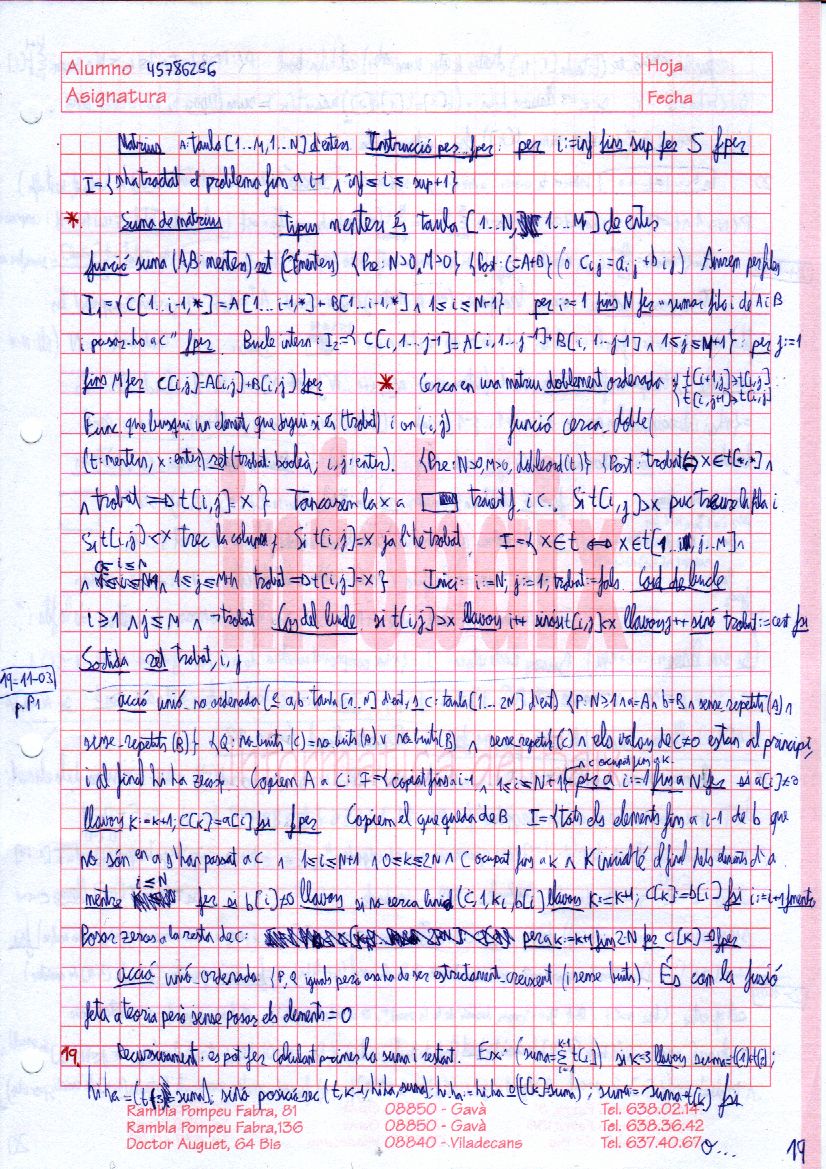 Alumno 45786256 Hoja
Asignatura Fecha
Matrius A: taula [1..M, 1..N] d'enters Instrucció per..fper: per i:=inf fins sup fer S fper
I={s'ha tractat el problema fins a i-1 ∧ inf ≤ i ≤ sup+1}
* Suma de matrius tipus menters és taula [1...N, 1...M] de enters
funció suma (A,B: menters) ret (C: menters) {Pre: N>0, M>0} {Post: C=A+B} (o Ci,j = ai,j + bi,j) Anirem per files
I1={C[1...i-1,*]=A[1...i-1,*]+B[1...i-1,*] ∧ 1≤i≤N+1} per i:=1 fins N fer "sumar fila i de A i B
i posar-ho a C" fper. Bucle intern: I2={C[i,1...j-1]=A[i,1...j-1]+B[i,1...j-1] ∧ 1≤j≤M+1} per j:=1
fins M fer C[i,j]=A[i,j]+B[i,j] fper * Cerca en una matriu doblement ordenada {t[i+1,j]>t[i,j]
{t[i,j+1]>t[i,j]
Func. que busqui un element, que digui si és (trobat) i on (i,j) funció cerca_doble(
(t: menters, x: enter) ret (trobat: booleà; i,j: enter). {Pre: N>0, M>0, dobleord(t)} {Post: trobat⇔x∈t[*,*] ∧
∧ trobat ⇒ t[i,j]=x} Tancarem la x a Si t[i,j]>x puc treure la fila i
Si t[i,j]<x trec la columna j. Si t[i,j]=x ja l'he trobat. I={x∈t ⇔ x∈t[1..i, j..M] ∧
0≤i≤N
∧ 1≤j≤M+1 ∧ trobat ⇒ t[i,j]=x} Inici: i:=N; j:=1; trobat:=fals. Cond de bucle
i≥1 ∧ j≤M ∧ ¬trobat Cos del bucle si t[i,j]>x llavors i++ sinó si t[i,j]<x llavors j++ sinó trobat:=cert fsi
Sortida ret trobat, i, j
19-11-03
p.P1
acció unió_no_ordenada (e a,b: taula [1..N] d'ent, s c: taula [1...2N] d'ent) {P: N≥1 ∧ a=A ∧ b=B ∧ sense_repetits(A) ∧
sense_repetits(B)} {Q: no_buits(c)=no_buits(A) ∪ no_buits(B) ∧ sense_repetits(c) ∧ els valors de c≠0 estan al principi,
i al final hi ha zeros} Copiem A a C: I={copiat fins a i-1 ∧ 1≤i≤N+1 ∧ c ocupat fins a k} per a i:=1 fins a N fer si a[i]≠0
llavors k:=k+1; C[k]:=a[i] fsi fper Copiem el que queda de B I={tots els elements fins a i-1 de b que
no són en a s'han passat a C ∧ 1≤i≤N+1 ∧ 0≤k≤2N ∧ C ocupat fins a k ∧ K inicial té el final dels elements d'a
mentre i≤N fer si b[i]≠0 llavors si no cerca_lineal(C,1,ki,b[i]) llavors k:=k+1; C[k]:=b[i] fsi i:=i+1 fmentre
Posar zeros a la resta de C: per a k:=k+1 fins 2N fer C[k]:=0 fper
acció unió_ordenada {P, Q iguals però ara ha de ser estrictament_creixent (i sense buits). És com la fusió
feta a teoria però sense posar els elements = 0
19. Recursivament: es pot fer calculant primer la suma i restant.
Rambla Pompeu Fabra, 81 08850 - Gavà Tel. 638.02.14
Rambla Pompeu Fabra,136 08850 - Gavà Tel. 638.36.42
Doctor Auguet, 64 Bis 08840 - Viladecans Tel. 637.40.67
o...
19